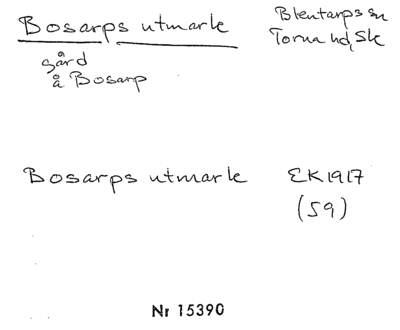 Bosarps utmark
Blentarps sn
Torna hd, Sk
gård
å Bosarp
Bosarps utmark
EK 1917
(59)
Nr 15390